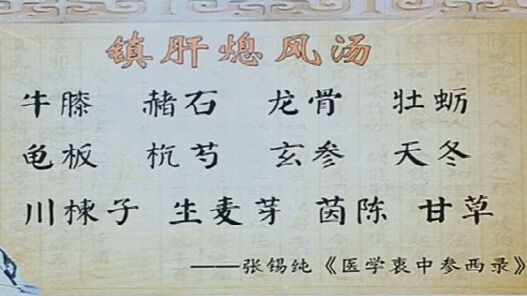 镇肝熄风汤
牛膝 赭石 龙骨 牡蛎
龟板 杭芍 玄参 天冬
川楝子 生麦芽 茵陈 甘草
——张锡纯《医学衷中参西录》